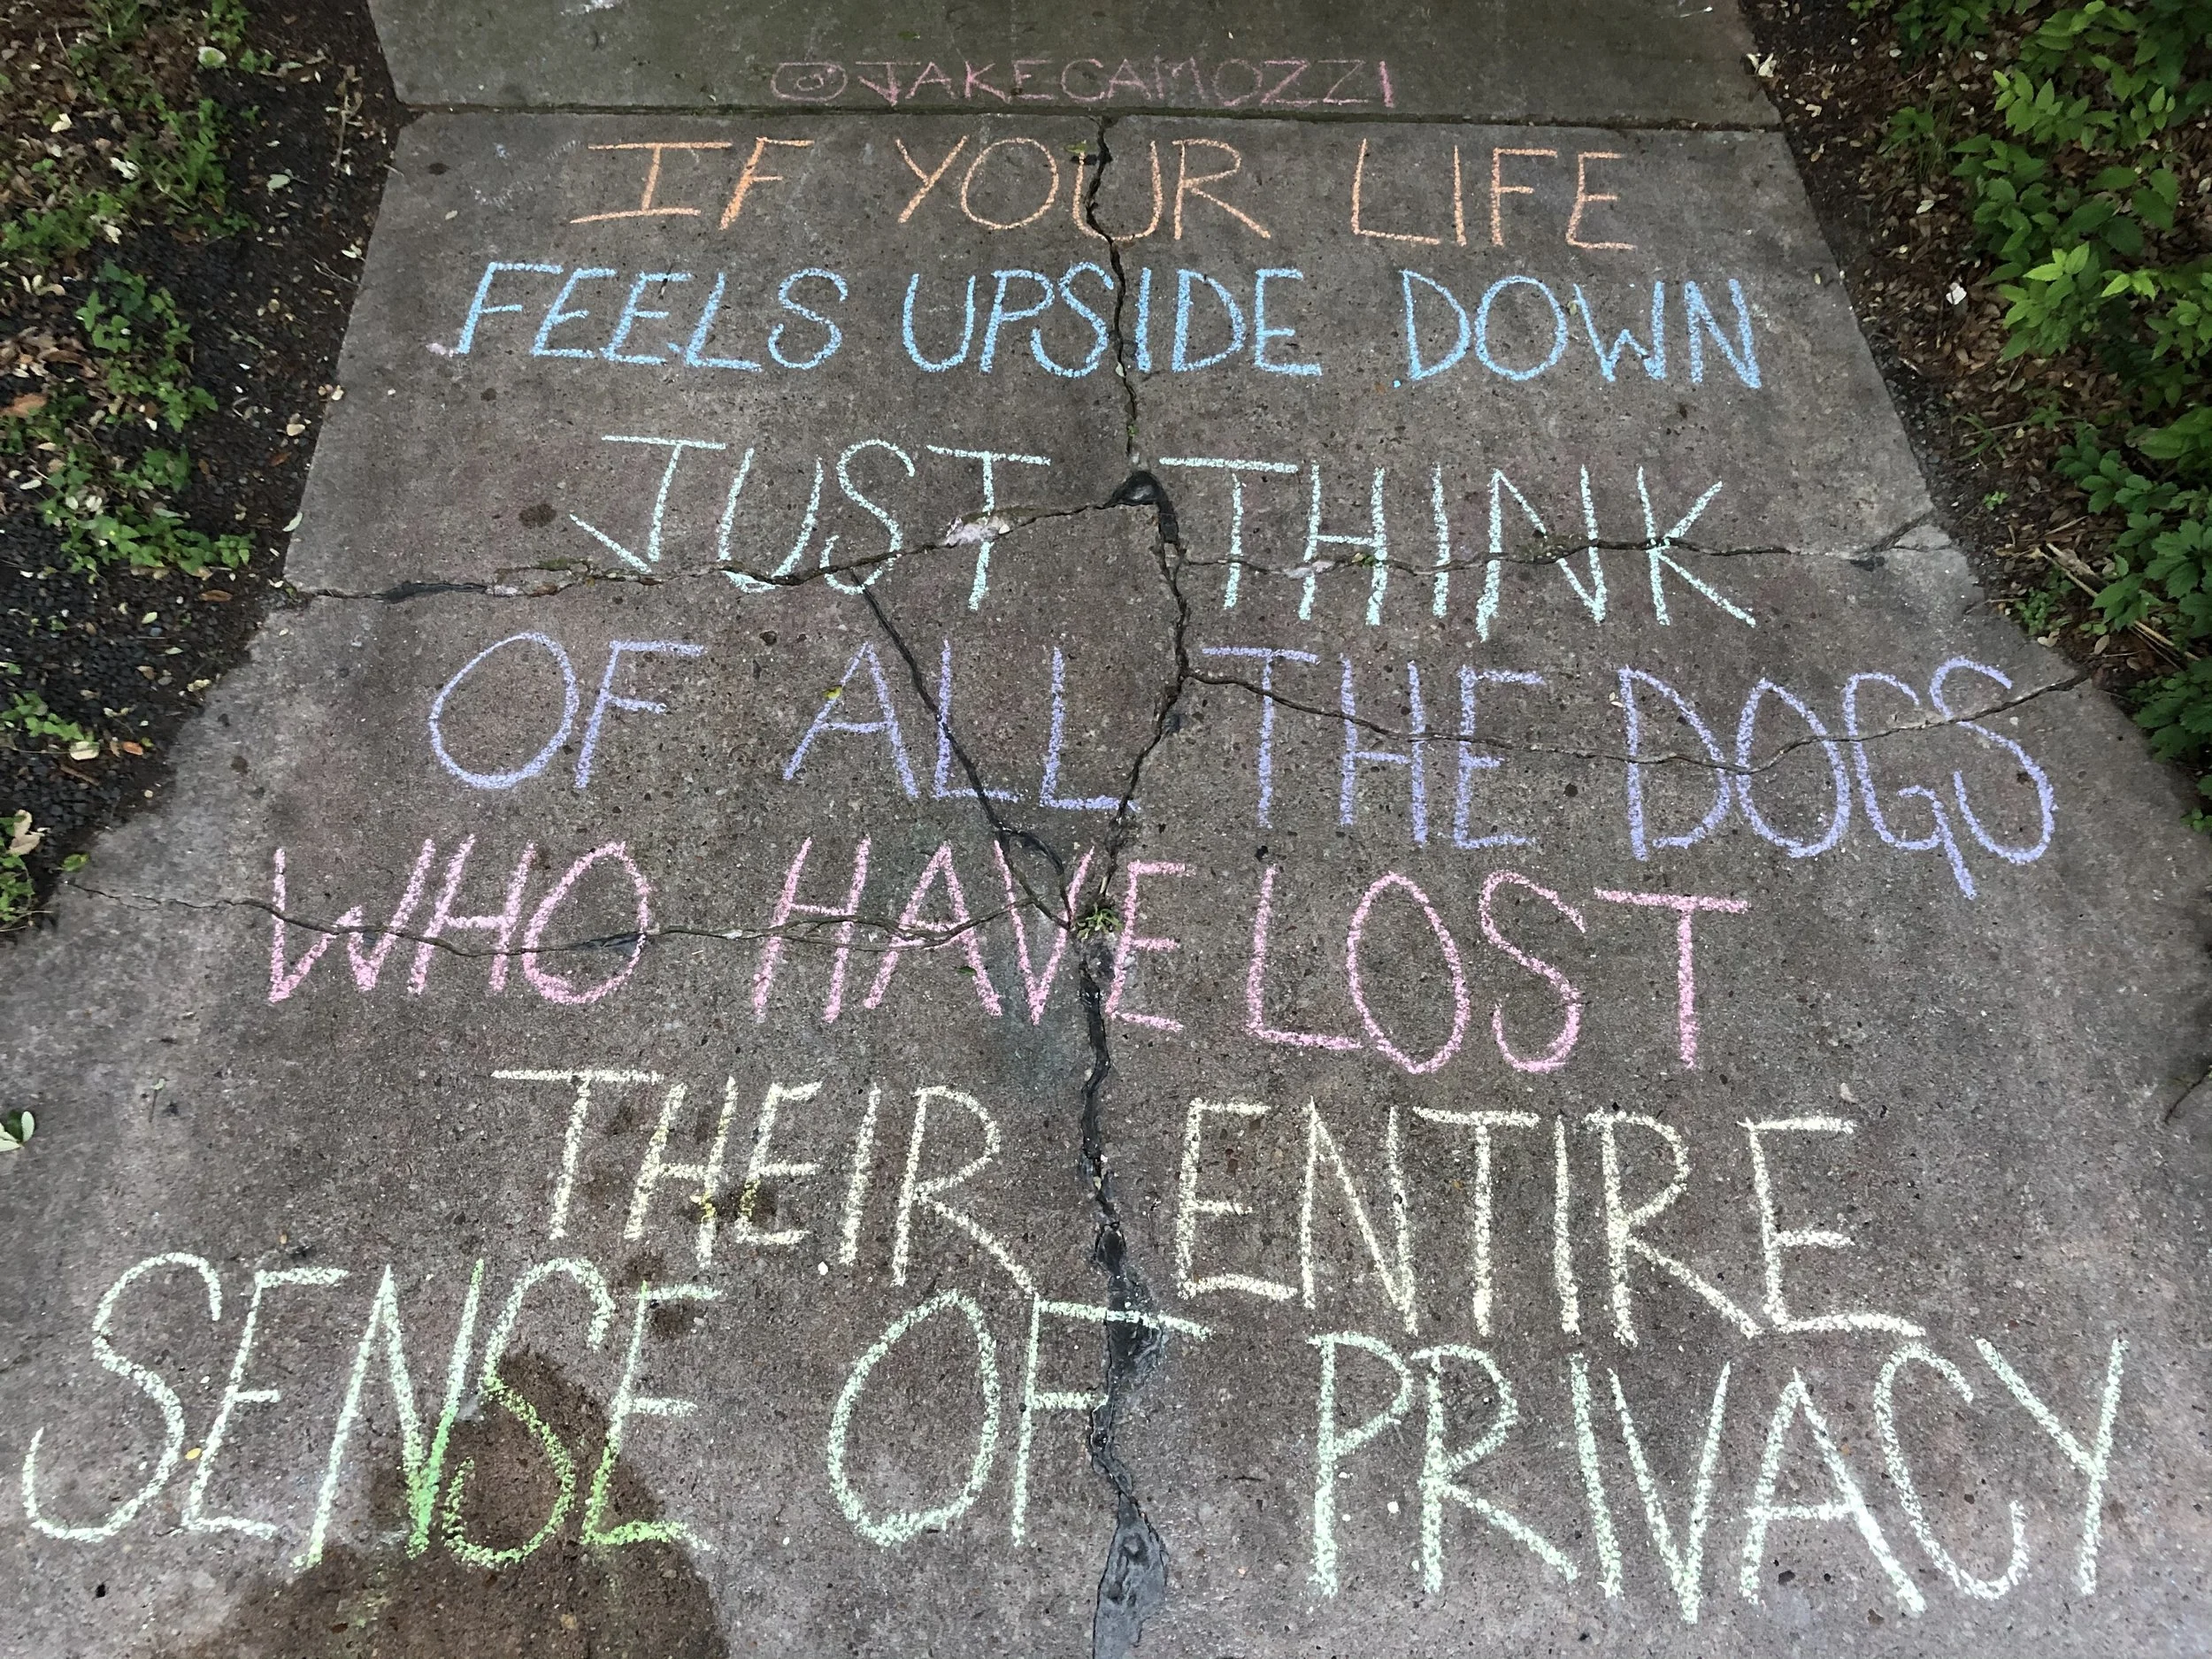 @JAKECAMOZZI
IF YOUR LIFE
FEELS UPSIDE DOWN
JUST THINK
OF ALL THE DOGS
WHO HAVE LOST
THEIR ENTIRE
SENSE OF PRIVACY